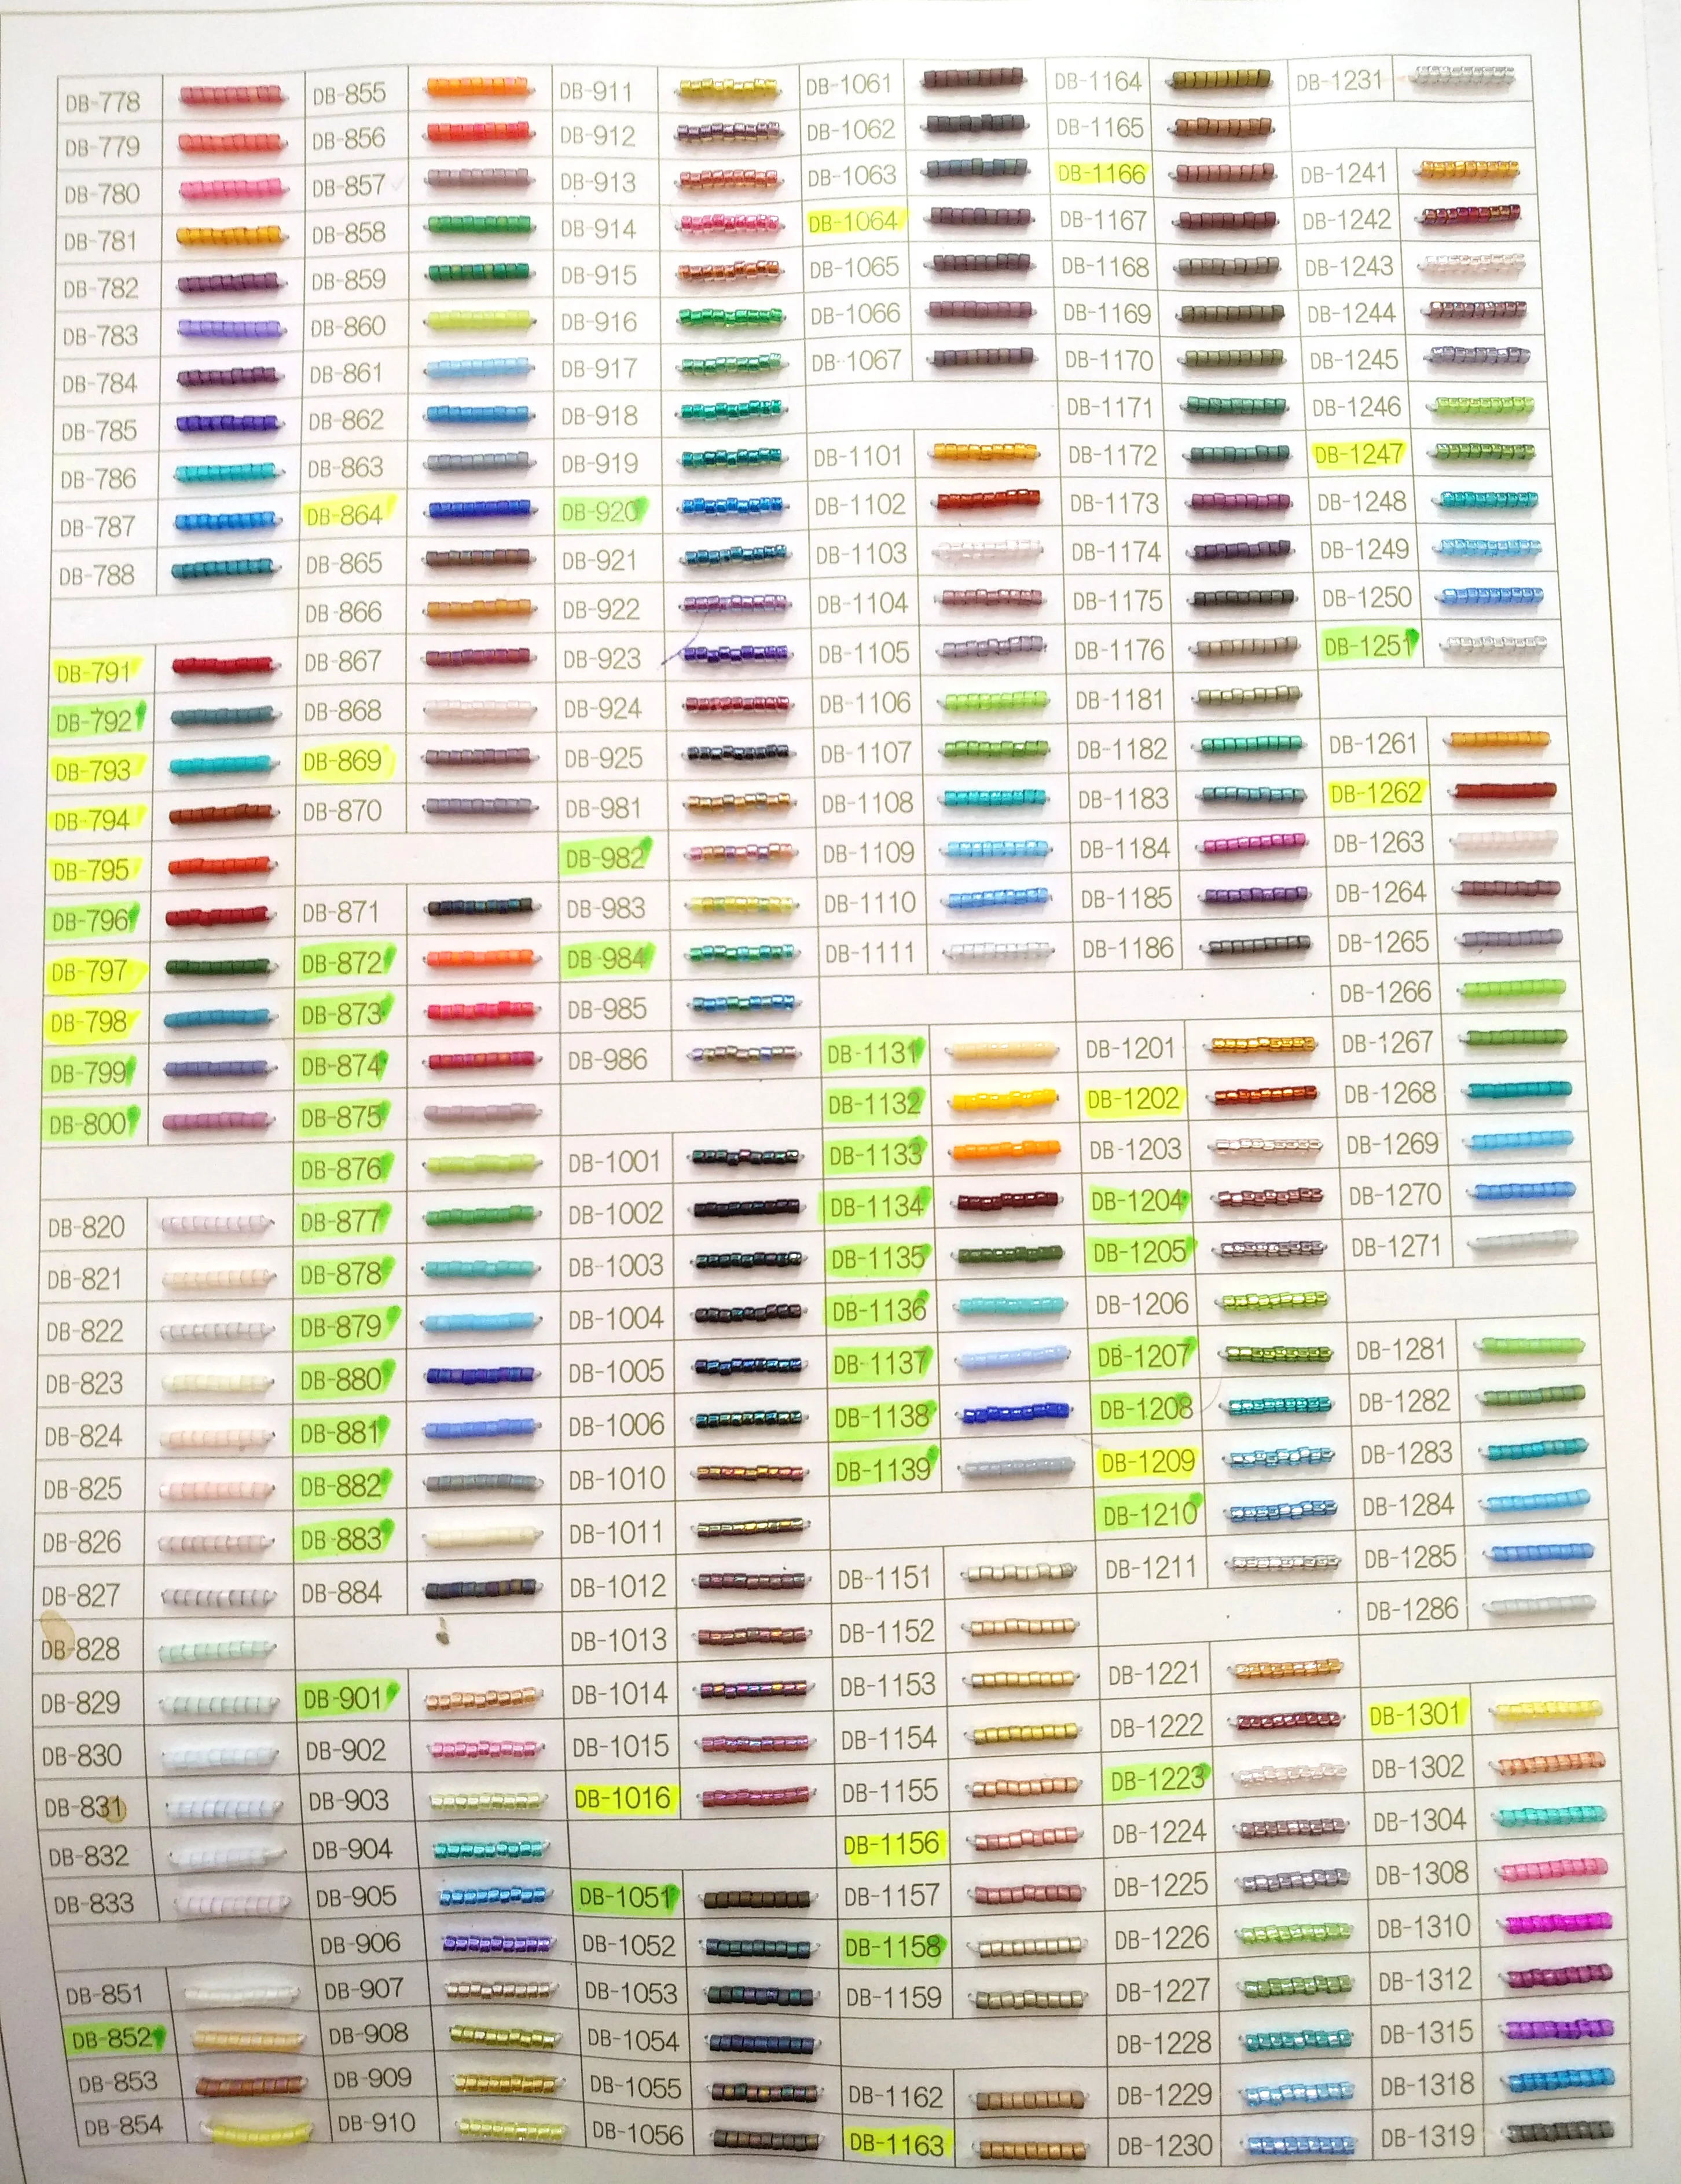 DB-778
DB-779
DB-780
DB-781
DB-782
DB-783
DB-784
DB-785
DB-786
DB-787
DB-788
DB-791
DB-792
DB-793
DB-794
DB-795
DB-796
DB-797
DB-798
DB-799
DB-800
DB-820
DB-821
DB-822
DB-823
DB-824
DB-825
DB-826
DB-827
DB-828
DB-829
DB-830
DB-831
DB-832
DB-833
DB-851
DB-852
DB-853
DB-854
DB-855
DB-856
DB-857
DB-858
DB-859
DB-860
DB-861
DB-862
DB-863
DB-864
DB-865
DB-866
DB-867
DB-868
DB-869
DB-870
DB-871
DB-872
DB-873
DB-874
DB-875
DB-876
DB-877
DB-878
DB-879
DB-880
DB-881
DB-882
DB-883
DB-884
DB-901
DB-902
DB-903
DB-904
DB-905
DB-906
DB-907
DB-908
DB-909
DB-910
DB-911
DB-912
DB-913
DB-914
DB-915
DB-916
DB-917
DB-918
DB-919
DB-920
DB-921
DB-922
DB-923
DB-924
DB-925
DB-981
DB-982
DB-983
DB-984
DB-985
DB-986
DB-1001
DB-1002
DB-1003
DB-1004
DB-1005
DB-1006
DB-1010
DB-1011
DB-1012
DB-1013
DB-1014
DB-1015
DB-1016
DB-1051
DB-1052
DB-1053
DB-1054
DB-1055
DB-1056
DB-1061
DB-1062
DB-1063
DB-1064
DB-1065
DB-1066
DB-1067
DB-1101
DB-1102
DB-1103
DB-1104
DB-1105
DB-1106
DB-1107
DB-1108
DB-1109
DB-1110
DB-1111
DB-1131
DB-1132
DB-1133
DB-1134
DB-1135
DB-1136
DB-1137
DB-1138
DB-1139
DB-1151
DB-1152
DB-1153
DB-1154
DB-1155
DB-1156
DB-1157
DB-1158
DB-1159
DB-1162
DB-1163
DB-1164
DB-1165
DB-1166
DB-1167
DB-1168
DB-1169
DB-1170
DB-1171
DB-1172
DB-1173
DB-1174
DB-1175
DB-1176
DB-1181
DB-1182
DB-1183
DB-1184
DB-1185
DB-1186
DB-1201
DB-1202
DB-1203
DB-1204
DB-1205
DB-1206
DB-1207
DB-1208
DB-1209
DB-1210
DB-1211
DB-1221
DB-1222
DB-1223
DB-1224
DB-1225
DB-1226
DB-1227
DB-1228
DB-1229
DB-1230
DB-1231
DB-1241
DB-1242
DB-1243
DB-1244
DB-1245
DB-1246
DB-1247
DB-1248
DB-1249
DB-1250
DB-1251
DB-1261
DB-1262
DB-1263
DB-1264
DB-1265
DB-1266
DB-1267
DB-1268
DB-1269
DB-1270
DB-1271
DB-1281
DB-1282
DB-1283
DB-1284
DB-1285
DB-1286
DB-1301
DB-1302
DB-1304
DB-1308
DB-1310
DB-1312
DB-1315
DB-1318
DB-1319